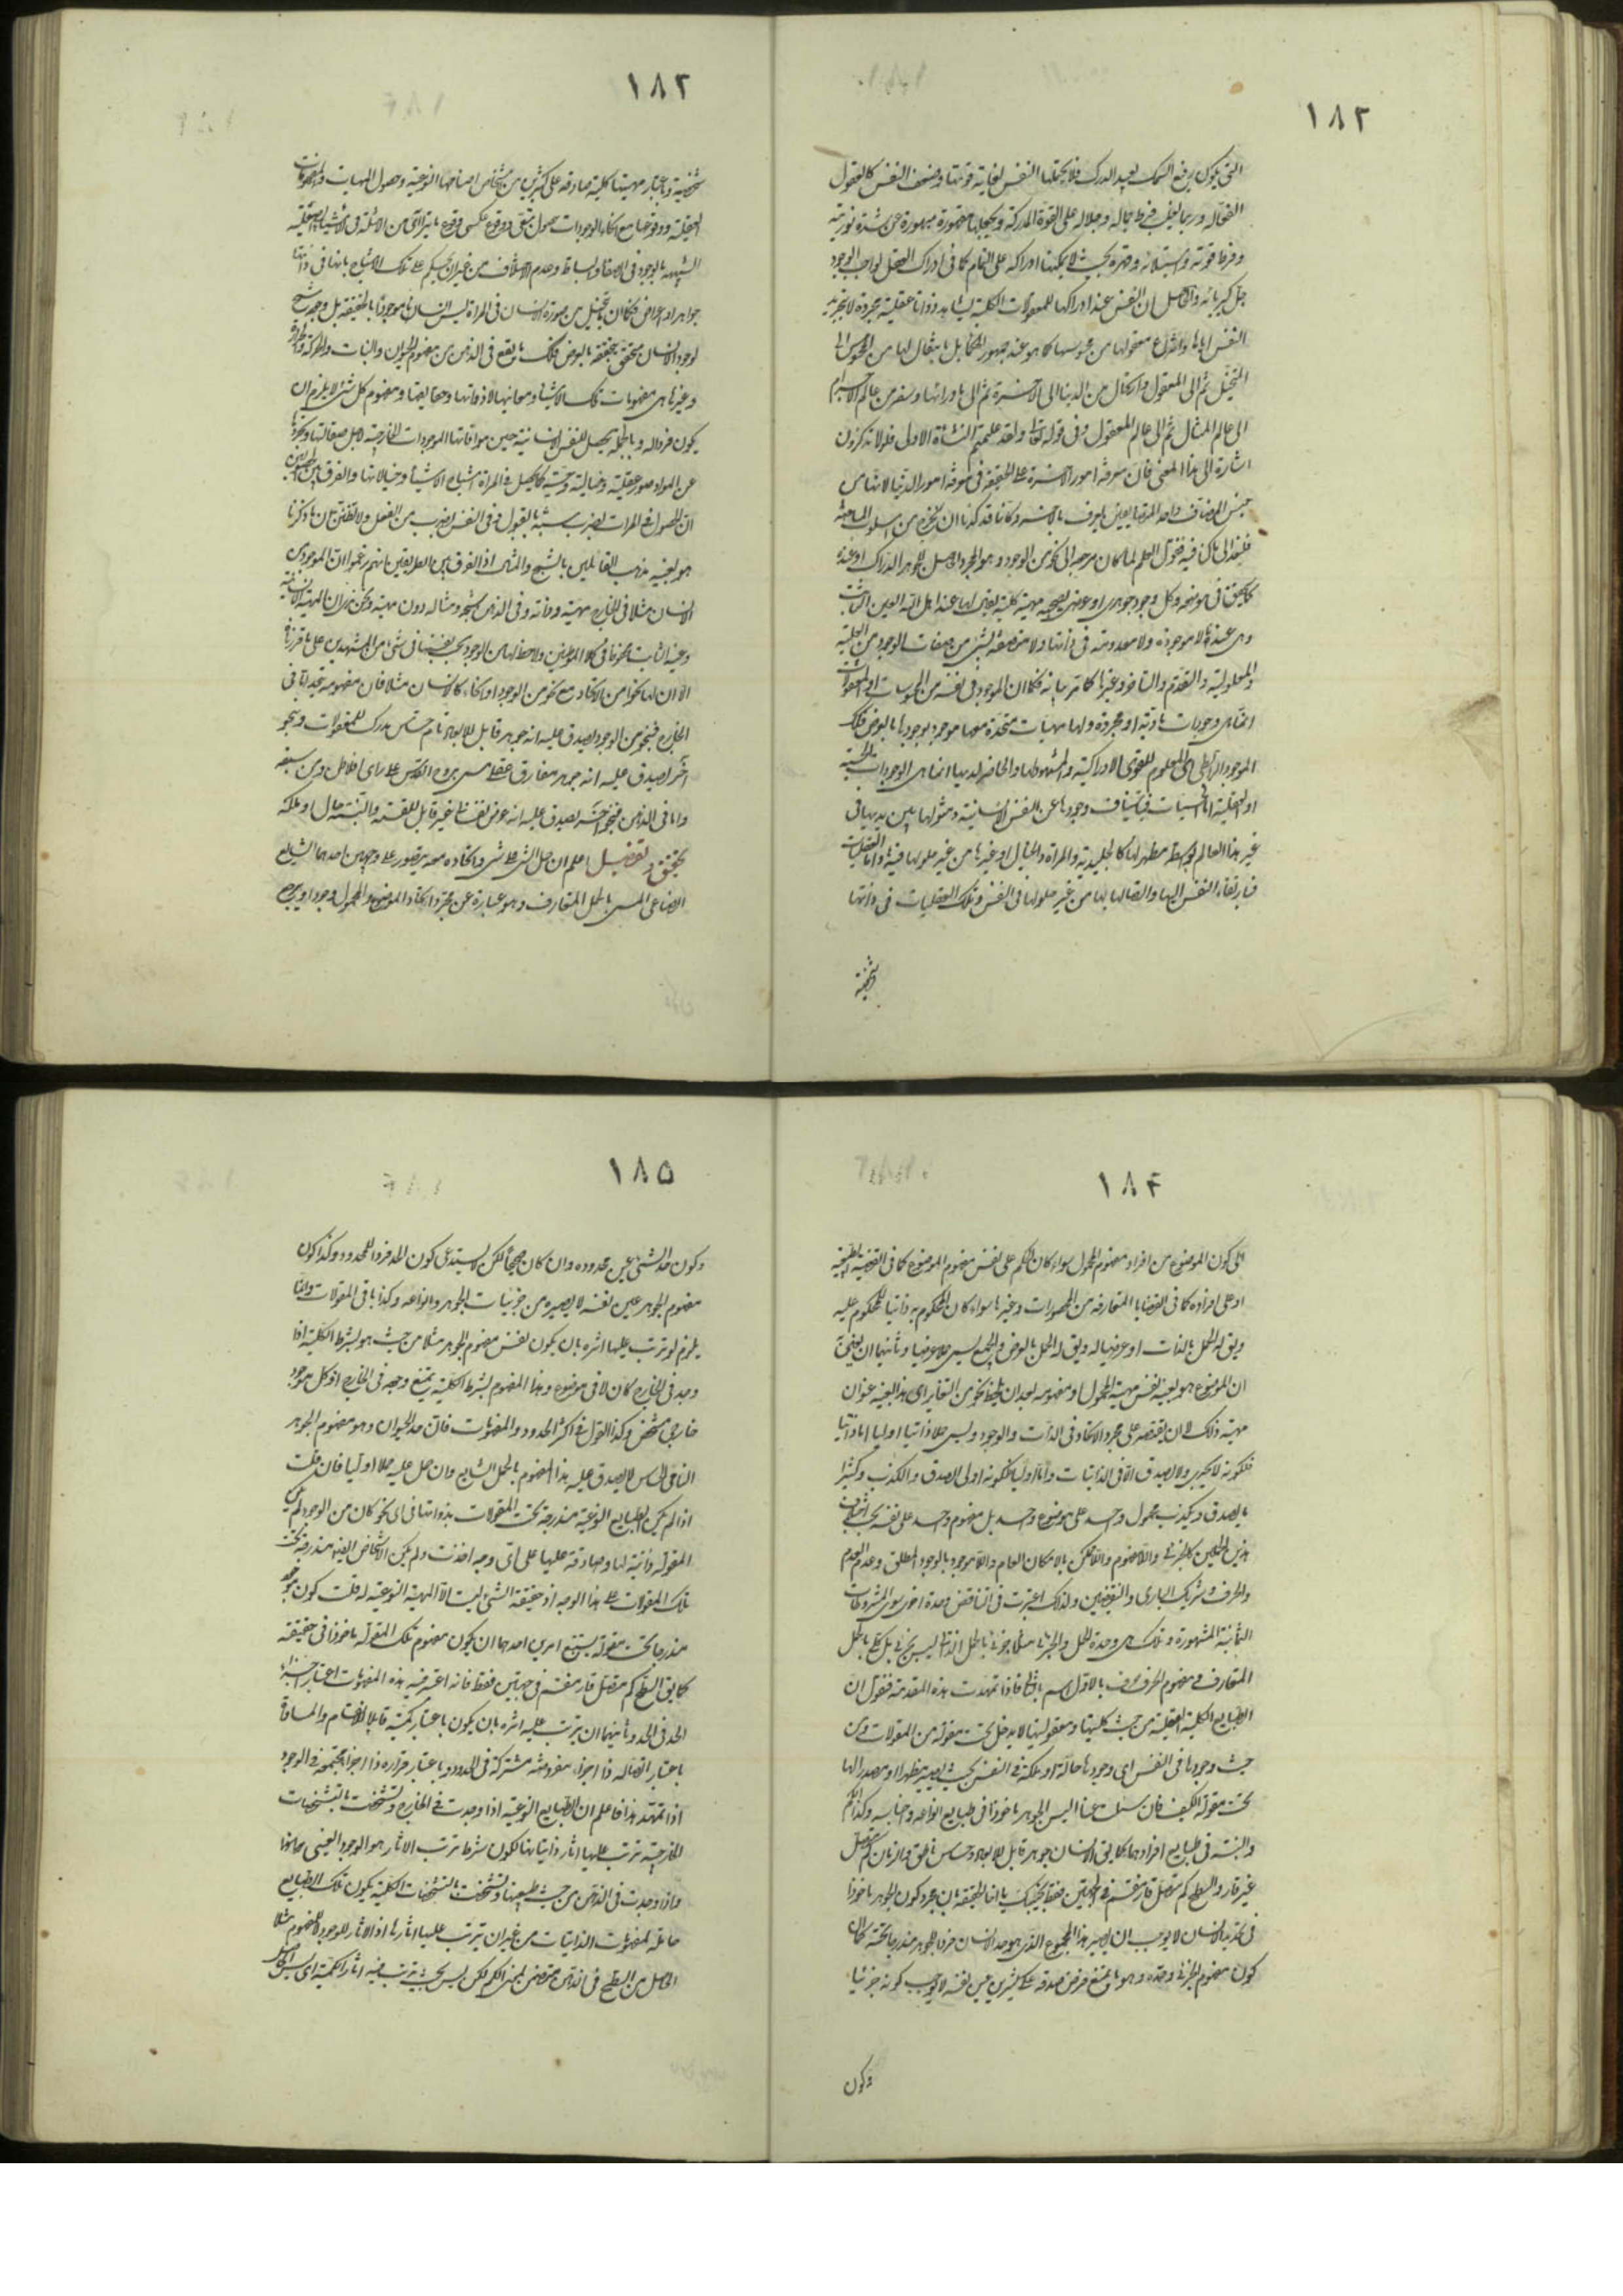 ١٨٢
التى يكون رفيع السمك بعيد الدرك فلا يحتملها النفس لغاية قوتها وضعف النفس كالعقول
الفعاله وربما يغلب فرط جماله وجلاله على القوة المدركة ويجعلها مقهورة مبهورة عن شدة نوريته
وفرط قوته واستيلائه وقهره بحيث لا يمكنها ادراكه على التمام كما فى ادراك العقل لواجب الوجود
جل كبريائه والحاصل ان النفس عند ادراكها للمعقولات الكلية يشاهد ذواتا عقلية مجردة لا بتجريد
النفس اياها وانتزاع معقولها من محسوسها كما هو عند جمهور الحكماء بل بانتقال لها من المحسوس الى
المتخيل ثم الى المعقول وارتحال من الدنيا الى الاخرة ثم الى ماورائها وسفر من عالم الاجرام
الى عالم المثال ثم الى عالم المعقول وفى قوله تعالى ولقد علمتم النشأة الاولى فلولا تذكرون
اشارة الى هذا المعنى فان معرفة امور الاخرة على الحقيقة فى معرفة امور الدنيا لانها من
جنس المضاف واحد المتضايفين يعرف بالاخر وكأنا قد كدنا ان نخرج من اسلوب المباحثة
فلنعد الى ما كنا فيه فنقول العلم لما كان مرجعه الى نحو من الوجود وهو المجرد الحاصل للجوهر الدراك او عنده
كما يحقق فى موضعه وكل وجود جوهرى او عرضى يصحبه مهية كلية يقال لها عند اهل الله العين الثابت
وهى عندنا لا موجودة ولا معدومة فى ذاتها ولا متصفة بشئ من صفات الوجود من العلية
والمعلولية والتقدم والتاخر وغيرها كما مر بيانه فكما ان الموجود فى نفسه من المحسوسات او المعقولات
انما هى وجودات مادية او مجردة ولها مهيات متحدة معها موجود بوجودها بالعرض فكذلك
الموجود الرابطى اى المعلوم للقوى الادراكية والمشهود لها والحاضر لديها انما هى الوجودات الحسية
او العقلية اما الحسيات فباستيناف وجودها عن النفس الانسانية ومثولها بين يديها فى
غير هذا العالم بواسطة مظهر لها كالجليدية والمراة والخيال او غيرها من غير حلولها فيه واما العقليات
فبارتقاء النفس اليها واتصالها بها من غير حلولها فى النفس وتلك العقليات فى ذاتها
شخصية
١٨٢
شخصية وباعتبار مهيتها كلية صادقة على كثيرين من اشخاص اصنامها النوعية وحصول المهيات والمفهومات
العقلية ووقوعها مع انحاء الوجودات حصول تبعى ووقوع عكسى وقوع ما يترائى من الامثلة فى الاشياء الصقيلة
الشبيهة بالوجود فى الصفاء والبساطة وعدم الاختلاف من غير ان يحكم على تلك الاشباح بانها فى ذاتها
جواهر او اعراض فكما ان ما يتخيل من صورة الانسان فى المراة ليس انسانا موجودا بالحقيقة بل وجوده شبح
لوجود الانسان متحقق بتحققه بالعرض فكذلك ما يقع فى الذهن من مفهوم الحيوان والنبات والحركة والحرارة
وغيرها هى مفهومات تلك الاشياء ومعانيها لا ذواتها وحقايقها ومفهوم كل شئ لا يلزم ان
يكون فردا له وبالجملة يحصل للنفس الانسانية حين موافاتها الموجودات الخارجية لاجل صقالتها وتجردها
عن المواد صور عقلية وخيالية وحسية كما يحصل فى المراة اشباح الاشياء وخيالاتها والفرق بين الحصولين
ان الحصول فى المرات بضرب شبيه بالقبول وفى النفس بضرب من الفعل ولا تظنن ان ما ذكرنا
هو بعينه مذهب القائلين بالشبح والمثال اذ الفرق بين الطريقين انهم زعموا ان الموجود من
الانسان مثلا فى الخارج مهيته وذاته وفى الذهن شبحه ومثاله دون مهيته ونحن نرى ان المهية الانسانية
وعينه الثابت محفوظة فى كلا الموطنين ولاحظ لها من الوجود بحسب نفسها فى شئ من المشهدين على ما قررنا
الا ان لها نحوا من الاتحاد مع نحو من الوجود او انحاء كالانسان مثلا فان مفهومه يتحد اما فى
الخارج فبنحو من الوجود يصدق عليه انه جوهر قابل للابعاد نام حساس مدرك للمعقولات وبنحو
آخر يصدق عليه انه جوهر مفارق عقلى مسمى بروح القدس على راى افلاطن ومن سبقه
واما فى الذهن فبنحو اخر يصدق عليه انه عرض نفسانى غير قابل للقسمة والنسبة حال او ملكة
تحقيق وتفصيل اعلم ان حمل الشئ على شئ واتحاده معه يتصور على وجهين احدهما الشايع
الصناعى المسمى بالحمل المتعارف وهو عبارة عن مجرد اتحاد الموضوع والمحمول وجودا ويرجع
١٨۴
الى كون الموضوع من افراد مفهوم المحمول سواء كان الحكم على نفس مفهوم الموضوع كما فى القضية الطبيعية
او على افراده كما فى القضايا المتعارفة من المحصورات وغيرها سواء كان المحكوم به ذاتيا للمحكوم عليه
ويق له الحمل بالذات او عرضيا له ويق له الحمل بالعرض والجميع يسمى حملا عرضيا وثانيهما ان يعنى به
ان الموضوع هو بعينه نفس مهية المحمول ومفهومه بعد ان يلحظ نحو من التغاير اى هذا بعينه عنوان
مهية ذلك لا ان يقتصر على مجرد الاتحاد فى الذات والوجود ويسمى حملا ذاتيا اوليا اما ذاتيا
فلكونه لا يجرى ولا يصدق الا فى الذاتيات واما اوليا فلكونه اولى الصدق والكذب وكثيرا
ما يصدق ويكذب محمول واحد على موضوع واحد بل مفهوم واحد على نفسه بحسب اختلاف
هذين الحملين كالجزئى واللامفهوم واللاممكن بالامكان العام واللاموجود بالوجود المطلق وعدم العدم
والحرف وشريك البارى والنقيضين ولذلك اعتبرت فى التناقض وحدة اخرى سوى المشروطات
الثمانية المشهورة وتلك هى وحدة الحمل والجزئى مثلا جزئى بالحمل الذاتى ليس بجزئى بل كلى بالحمل
المتعارف ومفهوم الحرف حرف بالاول اسم بالثانى فاذا تمهدت هذه المقدمة فنقول ان
الطبايع الكلية العقلية من حيث كليتها ومعقوليتها لا يدخل تحت مقولة من المقولات ومن
حيث وجودها فى النفس اى وجود حالة او ملكة فى النفس بحيث يصير مظهرا او مصدرا لها
تحت مقولة الكيف فان سئلت عنا اليس الجوهر ماخوذا فى طبايع انواعه واجناسه وكذا الكم
والنسبة فى طبايع افرادهما كما يق الانسان جوهر قابل للابعاد حساس ناطق والزمان كم متصل
غير قار والسطح كم متصل قار منقسم فى الجهتين فقط نجيبك يا اخا الحقيقة بان مجرد كون الجوهر ماخوذا
فى تحديد الانسان لا يوجب ان يصير هذا المجموع الذى هو حد الانسان فردا للجوهر مندرجا تحته كما ان
كون مفهوم الجزئى وحده وهو ما يمتنع فرض صدقه على كثيرين عين نفسه لا يوجب كونه جزئيا
وكون
١٨٥
وكون حد الشئ عين محدوده وان كان صحيحا لكن لا يستدعى كون الحد فردا للمحدود وكذا كون
مفهوم الجوهر عين نفسه لا يصيره من جزئيات الجوهر وانواعه وكذا باقى المقولات وانما
يلزم لو ترتب عليها اثره بان يكون نفس مفهوم الجوهر مثلا من حيث هو بشرط الكلية اذا
وجد فى الخارج كان لا فى موضوع وهذا المفهوم بشرط الكلية يمتنع وجوده فى الخارج اذ كل موجود
خارجى مشخص وكذا القول فى اكثر الحدود والمفهومات فان حد الحيوان وهو مفهوم الجوهر
النامى الحساس لا يصدق عليه هذا المفهوم بالحمل الشايع وان حمل عليه حملا اوليا فان قلت
اذا لم يكن الطبايع النوعية مندرجة تحت المقولات بذواتها فى اى نحو كان من الوجود لم يكن
المقولة ذاتية لها وصادقة عليها على اى وجه اخذت ولم يكن الاشخاص ايضا مندرجة تحت
تلك المقولات على هذا الوجه اذ حقيقة الشئ ليست الا المهية النوعية له قلت كون موجود
مندرجا تحت مقولة يستتبع امرين احدهما ان يكون مفهوم تلك المقولة ماخوذا فى حقيقته
كما يق السطح كم متصل قار منقسم فى جهتين فقط فانه اعتبر فيه هذه المفهومات اعتبار اجزاء
الحد فى الحد وثانيهما ان يترتب عليه اثره بان يكون باعتبار كميته قابلا للانقسام والمساواة
باعتبار اتصاله ذا اجزاء مفروضة مشتركة فى الحدود وباعتبار قراره ذا اجزاء مجتمعة فى الوجود
اذا تمهد هذا فاعلم ان الطبايع النوعية اذا وجدت فى الخارج وتشخصت بالتشخصات
الخارجية ترتب عليها اثار ذاتياتها لكون شرط ترتب الاثار هو الوجود العينى
واذا وجدت فى الذهن من حيث طبيعتها وتشخصت بالتشخصات الكلية يكون تلك الطبايع
حاملة لمفهومات الذاتيات من غير ان يترتب عليها اثارها اذ الاثار للوجود لا للمفهوم مثلا
الحاصل من السطح فى الذهن متضمن لمعنى الكم لكن ليس بحيث يترتب فيه اثار الكمية اى ليس